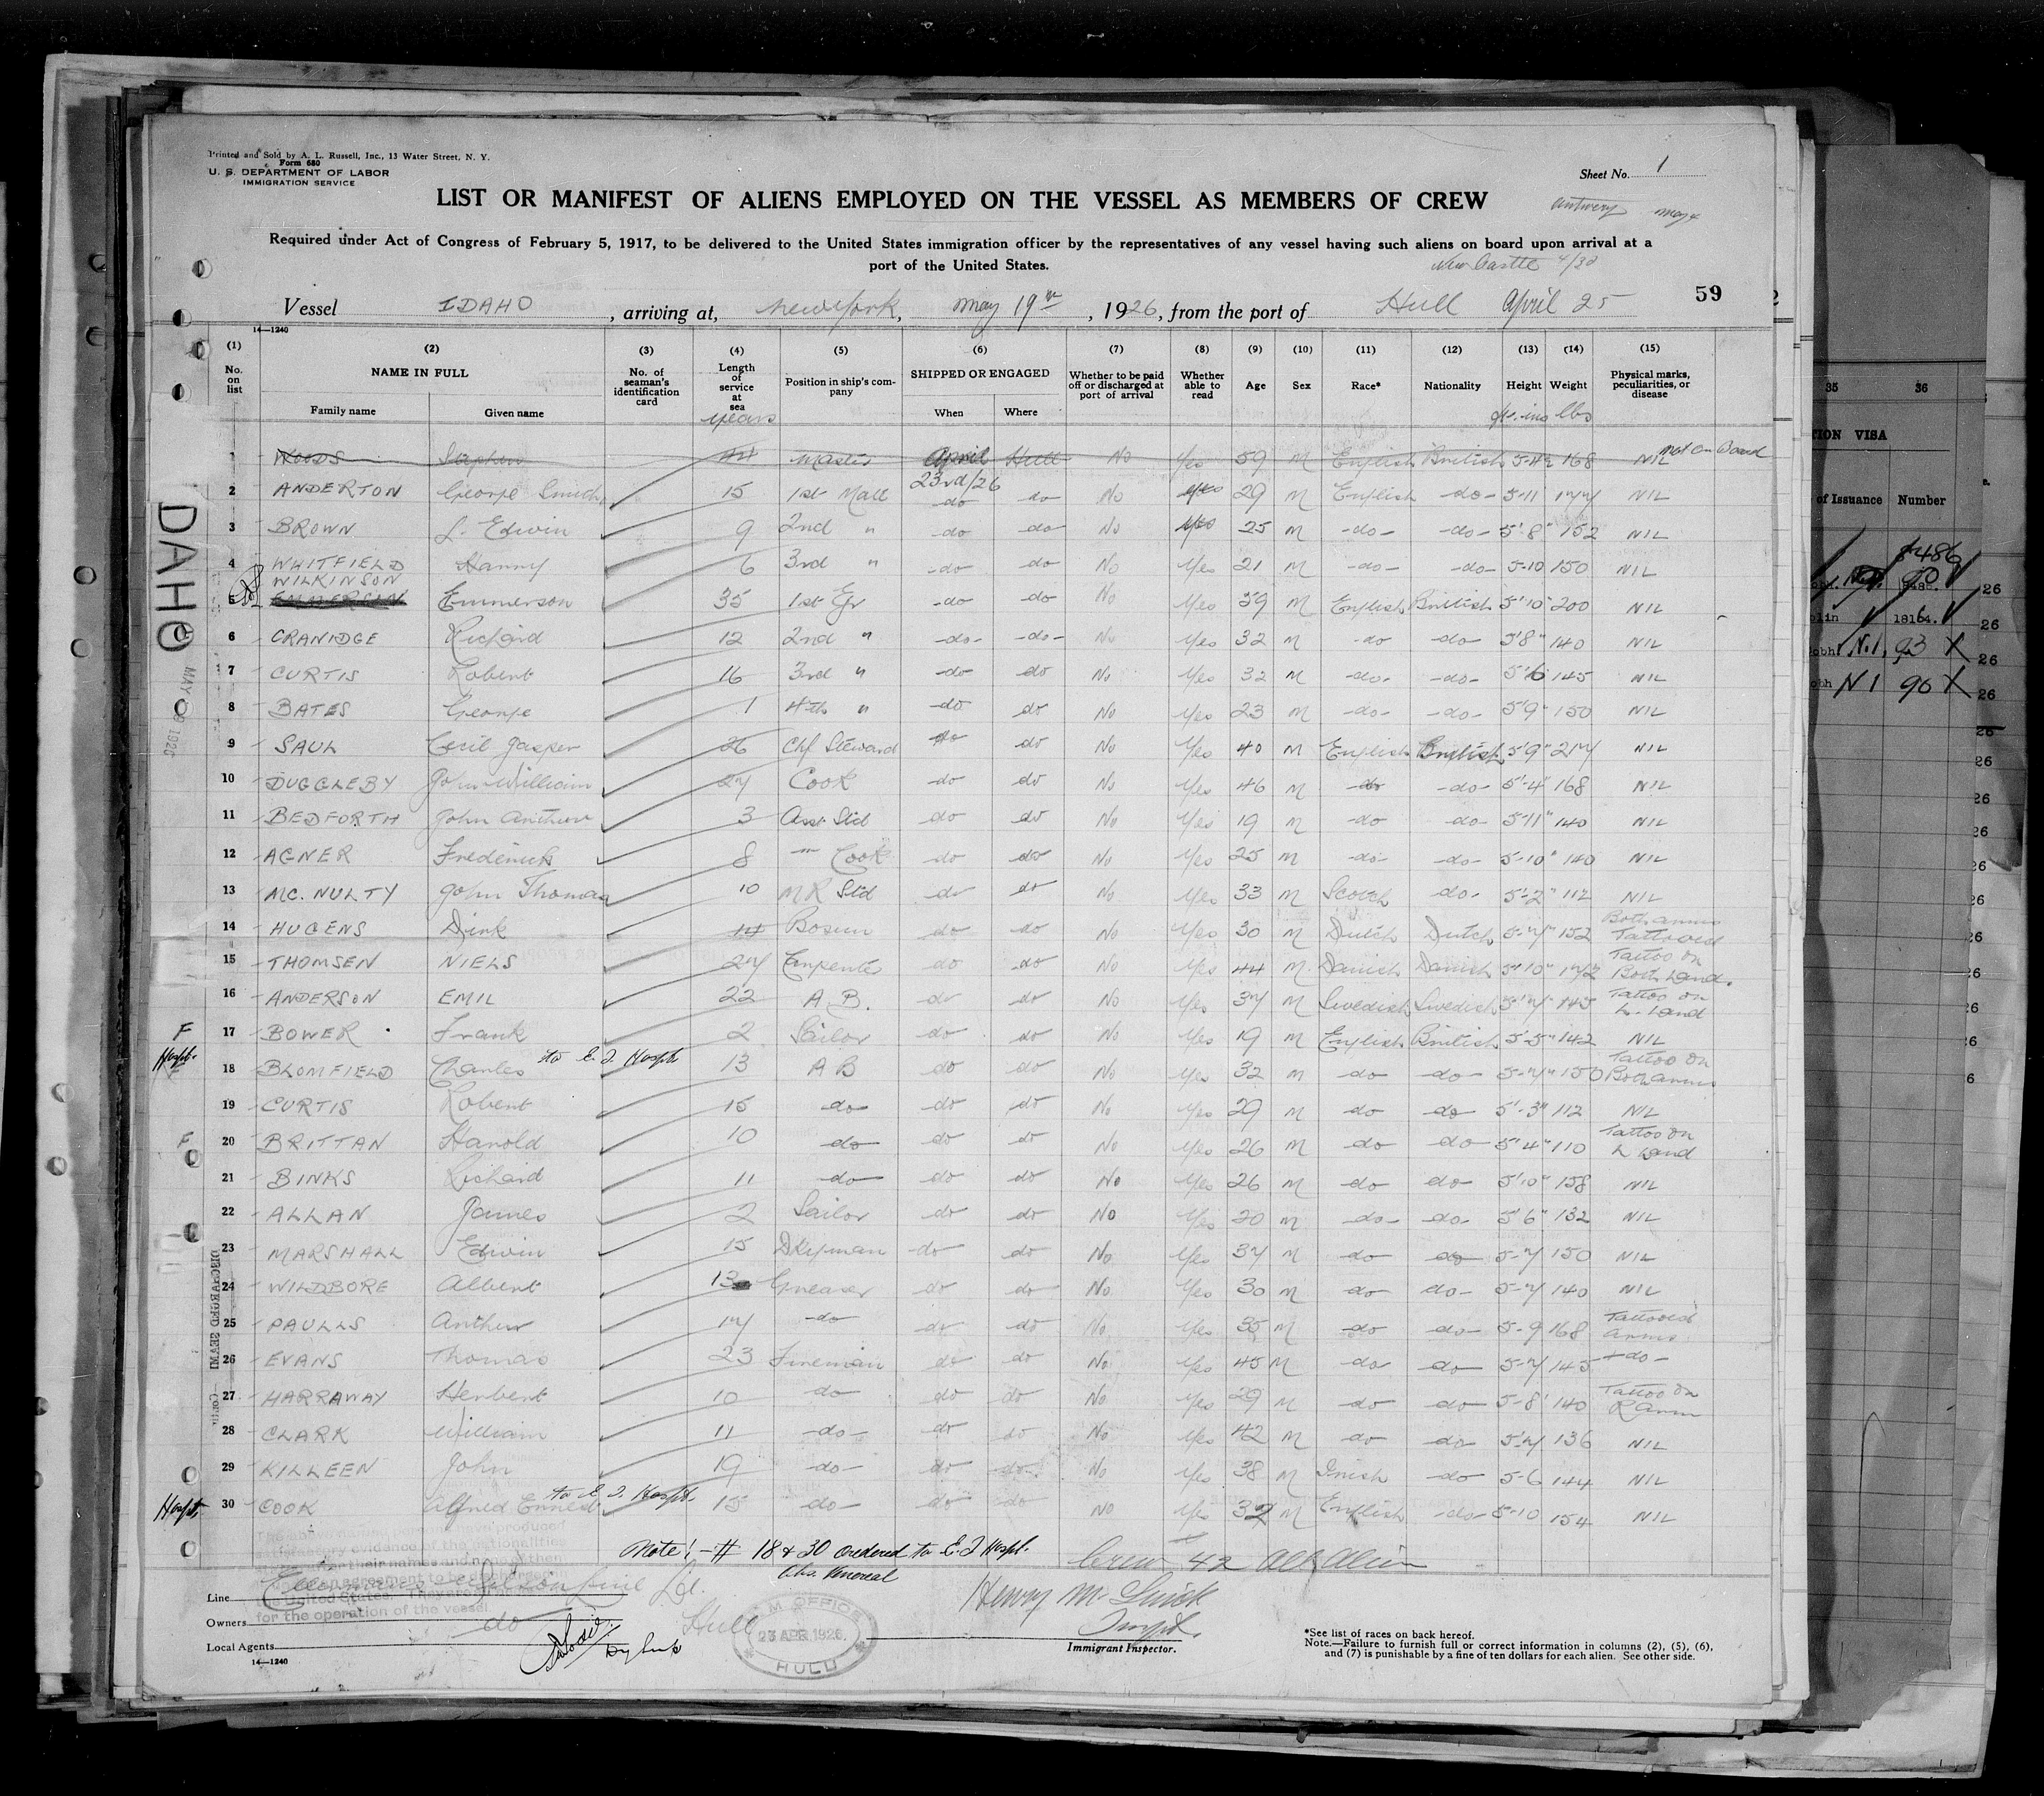 Printed and Sold by A. L. Russell, Inc., 13 Water Street, N. Y.
Form 680
U. S. DEPARTMENT OF LABOR
IMMIGRATION SERVICE
Sheet No. 1
LIST OR MANIFEST OF ALIENS EMPLOYED ON THE VESSEL AS MEMBERS OF CREW
Antwerp May 4
Required under Act of Congress of February 5, 1917, to be delivered to the United States immigration officer by the representatives of any vessel having such aliens on board upon arrival at a
port of the United States.
New Castle 4/30
59
Vessel IDAHO, arriving at, New York, May 19th, 1926, from the port of Hull April 25
14—1240
(1) (2) (3) (4) (5) (6) (7) (8) (9) (10) (11) (12) (13) (14) (15)
No. on list NAME IN FULL Family name Given name No. of seaman's identification card Length of service at sea years Position in ship's company SHIPPED OR ENGAGED When Where Whether to be paid off or discharged at port of arrival Whether able to read Age Sex Race* Nationality Height ft. ins Weight lbs Physical marks, peculiarities, or disease
1 WOODS Stephen 44 Master April 23rd/26 Hull No Yes 59 M English British 168 NIL Not on Board
2 ANDERTON George Smith 15 1st Mate do do No Yes 29 M English -do- 5-11 177 NIL
3 BROWN J. Edwin 9 2nd " do do No Yes 25 M -do- -do- 5'8" 152 NIL
4 WHITFIELD Harry 6 3rd " do do No Yes 21 M -do- -do- 5-10 150 NIL
WILKINSON
5 EMMERSON Emmerson 35 1st Egr do do No Yes 59 M English British 5'10" 200 NIL
6 CRANIDGE Richard 12 2nd " -do- -do- No Yes 32 M do do 5'8" 140 NIL
7 CURTIS Robert 16 3rd " do do No Yes 32 M -do- -do- 5'6 145 NIL
8 BATES George 1 4th " do do No Yes 23 M -do- -do- 5'9" 150 NIL
9 SAUL Cecil Jasper 26 Chf Steward do do No Yes 40 M English British 5'9" 217 NIL
10 DUGGLEBY John William 27 Cook do do No Yes 46 M do -do- 5'-4" 168 NIL
11 BEDFORTH John Arthur 3 Asst Std do do No Yes 19 M do -do- 5-11" 140 NIL
12 AGNER Frederick 8 " Cook do do No Yes 25 M -do- -do- 5-10" 140 NIL
13 MC. NULTY John Thomas 10 M R Std do do No Yes 33 M Scotch do- 5'-2" 112 NIL
14 HUGENS Dirk 14 Bosun do do No Yes 30 M Dutch Dutch 5-7" 152 Both arms Tattooed
15 THOMSEN NIELS 27 Carpenter do do No Yes 44 M Danish Danish 5'10" 172 Tattoo on Both Hand.
16 ANDERSON EMIL 22 A B. do do No Yes 37 M Swedish Swedish 5'7" 145 Tattoo on L. Hand
F 17 BOWER Frank 2 Sailor do do No Yes 19 M English British 5-5" 142 NIL
Hospt. 18 BLOMFIELD Charles to E. I. Hospt. 13 A B do do No Yes 32 M do do 5-7" 150 Tattoo on Both arms
19 CURTIS Robert 15 do do do No Yes 29 M do do 5'-3" 112 NIL
F 20 BRITTAN Harold 10 do do do No Yes 26 M do do 5'4" 110 Tattoo on L Hand
21 BINKS Richard 11 do do do No Yes 26 M do do 5'10" 158 NIL
22 ALLAN James 2 Sailor do do No Yes 20 M do- do- 5'6" 132 NIL
23 MARSHALL Edwin 15 Dkyman do do No Yes 37 M do do 5-7 150 NIL
24 WILDBORE Albert 13 Greaser do do No Yes 30 M do do- 5-7 140 NIL
25 PAULLS Arthur 17 do do do No Yes 35 M do do- 5-9 168 Tattooed arms
26 EVANS Thomas 23 Fireman do do No Yes 45 M do do 5-7 145 -do-
27 HARRAWAY Herbert 10 do do do No Yes 29 M do do 5-8 140 Tattoo on R arm
28 CLARK William 11 -do- do do No Yes 42 M do do 5-7 136 NIL
29 KILLEEN John 19 -do- do do- No Yes 38 M Irish -do 5-6 144 NIL
Hospt. 30 COOK Alfred Ernest to E I Hospt. 15 do- do do No Yes 32 M English -do- 5-10 154 NIL
Note! - # 18 & 30 ordered to E. I Hospl.
Crew 42 All Alien
Line Ellerman's Wilson Line Ld.
Henry McGuick
Owners do Hull
23 APR 1926
HULL
Inspt.
Local Agents
Immigrant Inspector.
14—1240
*See list of races on back hereof.
Note.—Failure to furnish full or correct information in columns (2), (5), (6),
and (7) is punishable by a fine of ten dollars for each alien. See other side.
IDAHO
35 36
ION VISA
of Issuance Number